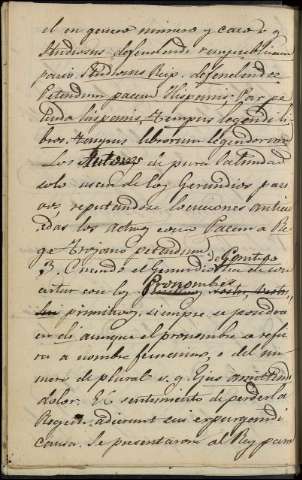 el en genero numero y caso v. g
Studiosus defendendi rempublicam
para Studiosus Reip. defendendæ
Petendum pacem Hispanis por pe
tenda hispanis. Tempus legendi li
bros. Tempus librorum legendorum
Los Autores de pura latinidad
solo usan de los Gerundios pasi
vos, reputandose locuciones anticu
adas los activos como Pacem a Re
ge Trojano petendum.
3. Cuando el Gerundio de Genitivo
con los Pronombres
primitivos, siempre se pondra
en di aunque el pronombre se refie
ra a nombre femenino, o del nu
mero de plural v. g. Ejus
dolor. El sentimiento de perderla
Regem adierunt sui expurgandi
causa. Se presentaron al Rey para